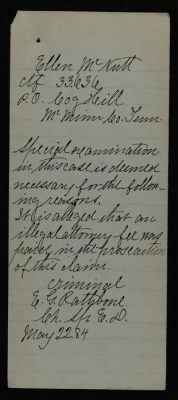 Ellen McNutt
ctf 33636
P.O. Cog Hill
McMinn Co. Tenn.
Special examination
in this case is deemed
necessary for the follow-
ing reasons.
It is alleged that an
illegal attorney fee was
paid in the prosecution
of this claim.
Criminal
E. G. Rathbone
Ch. Sp. E. D.
May 22 84